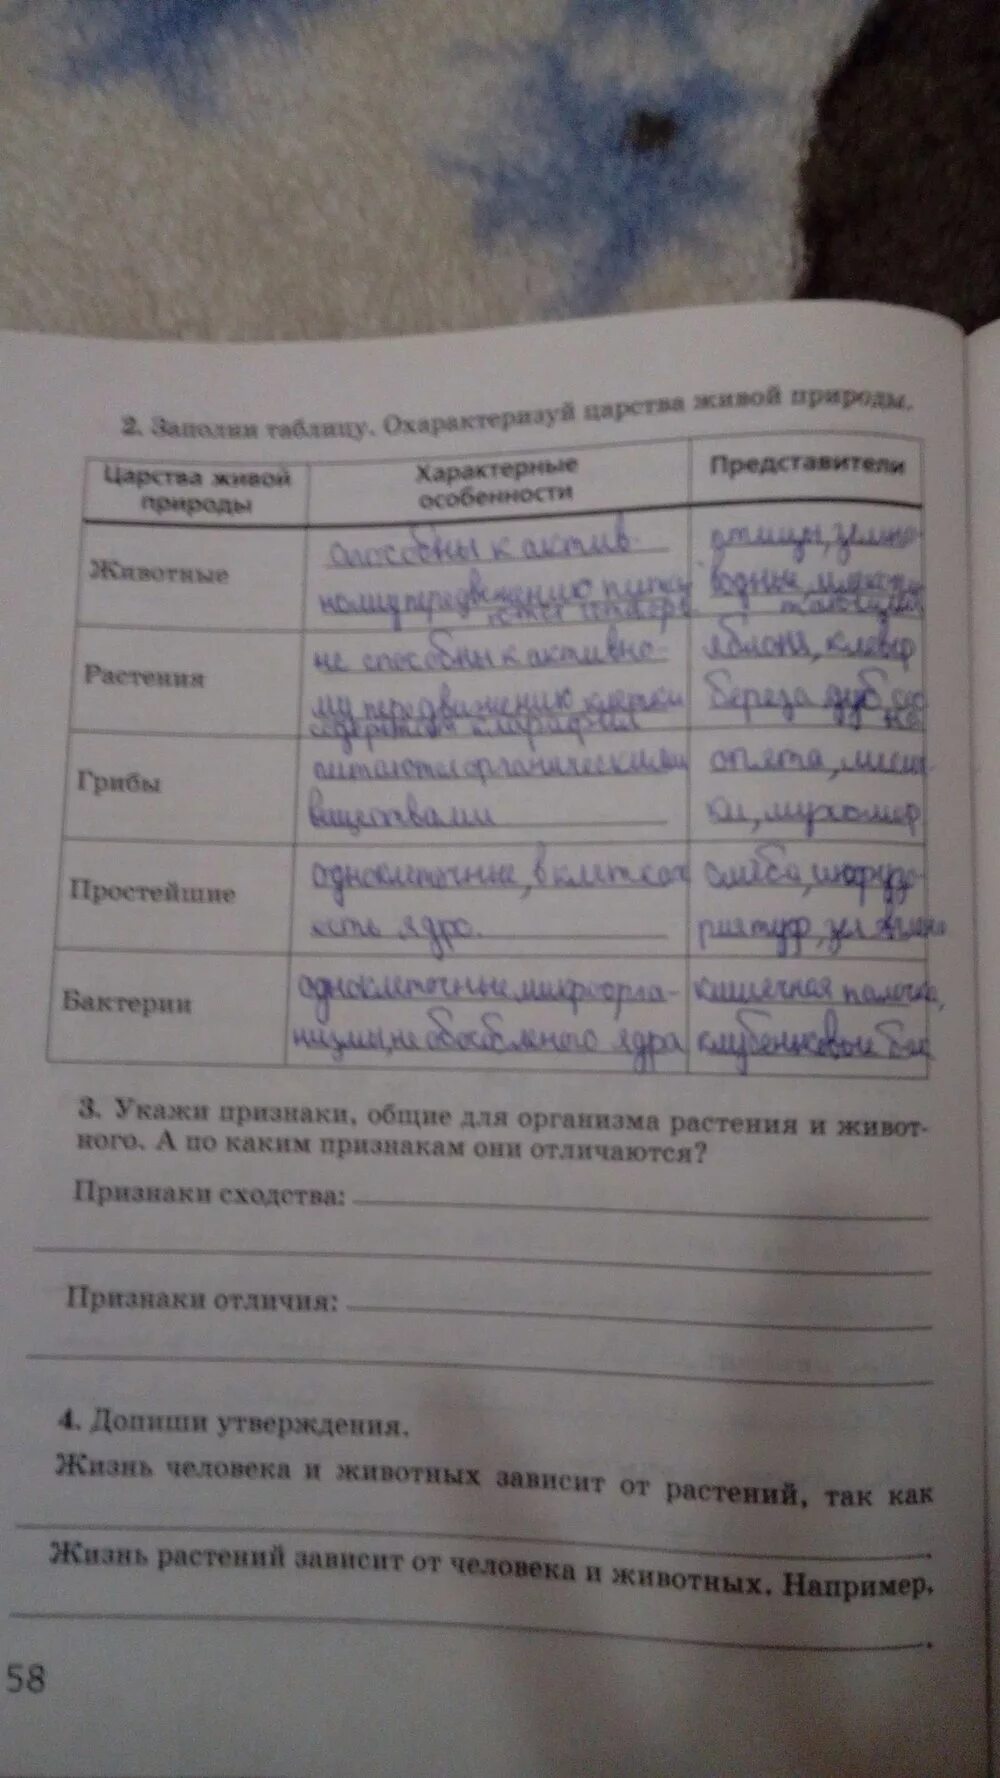 2. Заполни таблицу. Охарактеризуй царства живой природы.
Царства живой природы
Характерные особенности
Представители
Животные
способны к актив-
ному передвижению
птицы, земно-
водные, млекопи
Растения
не способны к активно-
му передвижению клетки
содержат
яблоня, клевер
береза дуб, сос
на
Грибы
питаются органическими
веществами
опята, лисич-
ки, мухомор
Простейшие
одноклеточные, в клетках
есть ядро.
амёба, инфузо-
рия туф,
Бактерии
одноклеточные микроорга-
низмы, не обособленного ядра
кишечная палочка,
клубеньковые бак
3. Укажи признаки, общие для организма растения и живот-
ного. А по каким признакам они отличаются?
Признаки сходства:
Признаки отличия:
4. Допиши утверждения.
Жизнь человека и животных зависит от растений, так как
Жизнь растений зависит от человека и животных. Например,
58